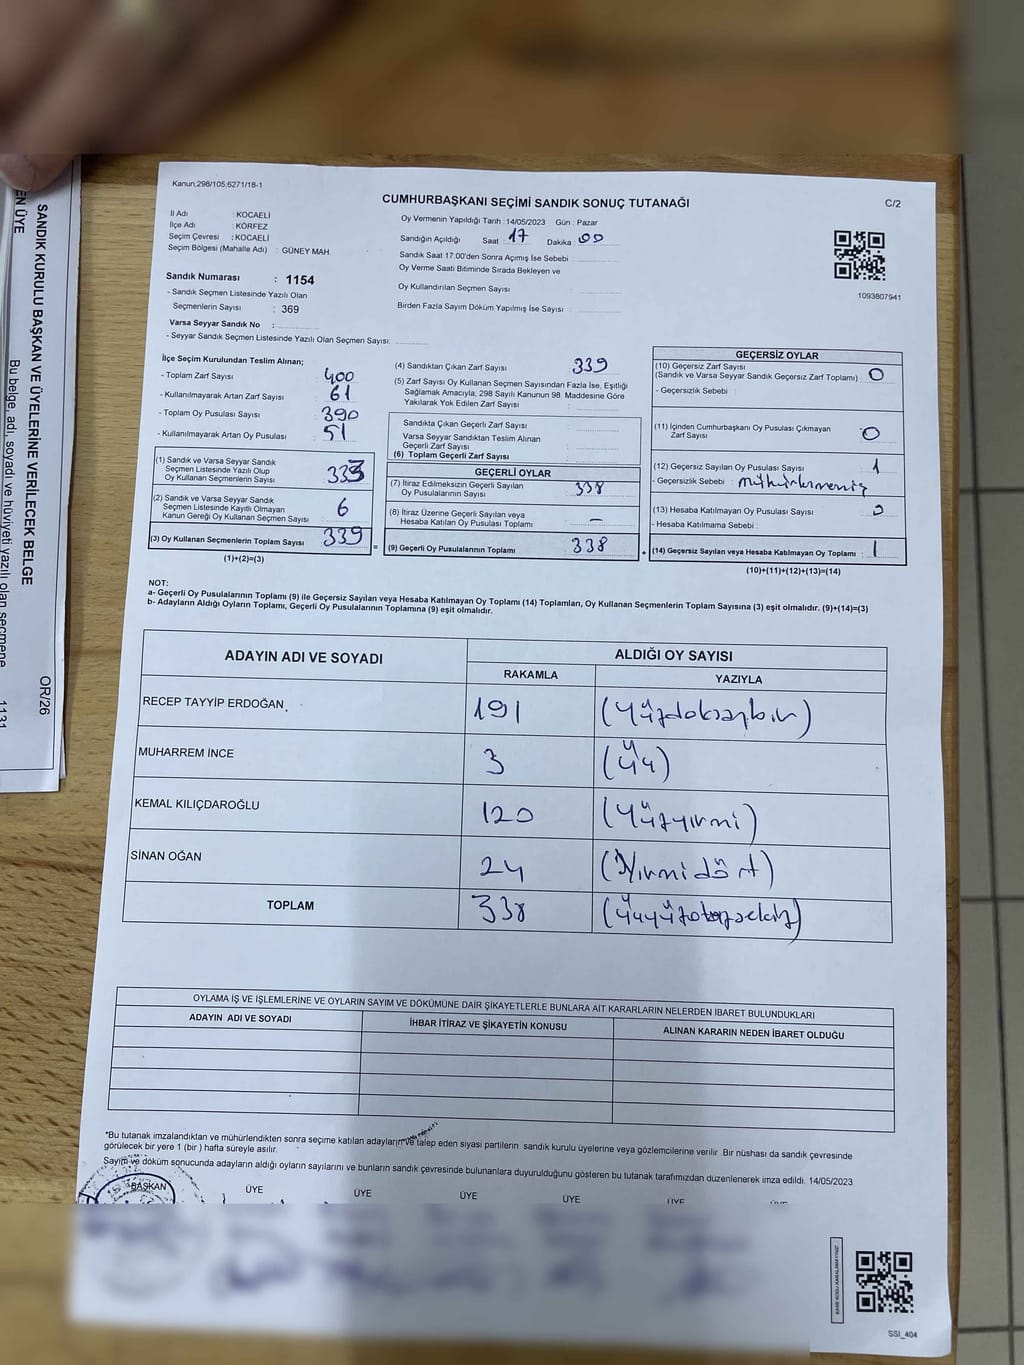 Kanun;298/105,6271/18-1
CUMHURBAŞKANI SEÇİMİ SANDIK SONUÇ TUTANAĞI
C/2
İl Adı : KOCAELİ
İlçe Adı : KÖRFEZ
Seçim Çevresi : KOCAELİ
Seçim Bölgesi (Mahalle Adı) : GÜNEY MAH.
Sandık Numarası : 1154
- Sandık Seçmen Listesinde Yazılı Olan
Seçmenlerin Sayısı : 369
Varsa Seyyar Sandık No :
- Seyyar Sandık Seçmen Listesinde Yazılı Olan Seçmen Sayısı:
Oy Vermenin Yapıldığı Tarih : 14/05/2023 Gün : Pazar
Sandığın Açıldığı Saat : 17 Dakika : 00
Sandık Saat 17:00'den Sonra Açımış İse Sebebi :
Oy Verme Saati Bitiminde Sırada Bekleyen ve
Oy Kullandırılan Seçmen Sayısı :
Birden Fazla Sayım Döküm Yapılmış İse Sayısı :
1093807941
İlçe Seçim Kurulundan Teslim Alınan;
- Toplam Zarf Sayısı : 400
- Kullanılmayarak Artan Zarf Sayısı : 61
- Toplam Oy Pusulası Sayısı : 390
- Kullanılmayarak Artan Oy Pusulası : 51
(1) Sandık ve Varsa Seyyar Sandık
Seçmen Listesinde Yazılı Olup
Oy Kullanan Seçmenlerin Sayısı : 333
(2) Sandık ve Varsa Seyyar Sandık
Seçmen Listesinde Kayıtlı Olmayan
Kanun Gereği Oy Kullanan Seçmen Sayısı : 6
(3) Oy Kullanan Seçmenlerin Toplam Sayısı : 339
(1)+(2)=(3)
=
(4) Sandıktan Çıkan Zarf Sayısı : 339
(5) Zarf Sayısı Oy Kullanan Seçmen Sayısından Fazla İse, Eşitliği
Sağlamak Amacıyla; 298 Sayılı Kanunun 98. Maddesine Göre
Yakılarak Yok Edilen Zarf Sayısı :
Sandıkta Çıkan Geçerli Zarf Sayısı :
Varsa Seyyar Sandıktan Teslim Alınan
Geçerli Zarf Sayısı :
(6) Toplam Geçerli Zarf Sayısı :
GEÇERLİ OYLAR
(7) İtiraz Edilmeksizin Geçerli Sayılan
Oy Pusulalarının Sayısı : 338
(8) İtiraz Üzerine Geçerli Sayılan veya
Hesaba Katılan Oy Pusulası Toplamı : –
(9) Geçerli Oy Pusulalarının Toplamı : 338
+
GEÇERSİZ OYLAR
(10) Geçersiz Zarf Sayısı
(Sandık ve Varsa Seyyar Sandık Geçersiz Zarf Toplamı) : 0
- Geçersizlik Sebebi :
(11) İçinden Cumhurbaşkanı Oy Pusulası Çıkmayan
Zarf Sayısı : 0
(12) Geçersiz Sayılan Oy Pusulası Sayısı : 1
- Geçersizlik Sebebi : mühürlenmemiş
(13) Hesaba Katılmayan Oy Pusulası Sayısı : 0
- Hesaba Katılmama Sebebi :
(14) Geçersiz Sayılan veya Hesaba Katılmayan Oy Toplamı : 1
(10)+(11)+(12)+(13)=(14)
NOT:
a- Geçerli Oy Pusulalarının Toplamı (9) ile Geçersiz Sayılan veya Hesaba Katılmayan Oy Toplamı (14) Toplamları, Oy Kullanan Seçmenlerin Toplam Sayısına (3) eşit olmalıdır. (9)+(14)=(3)
b- Adayların Aldığı Oyların Toplamı, Geçerli Oy Pusulalarının Toplamına (9) eşit olmalıdır.
ADAYIN ADI VE SOYADI
ALDIĞI OY SAYISI
RAKAMLA
YAZIYLA
RECEP TAYYİP ERDOĞAN 191 (Yüzdoksanbir)
MUHARREM İNCE 3 (Üç)
KEMAL KILIÇDAROĞLU 120 (Yüzyirmi)
SİNAN OĞAN 24 (Yirmi dört)
TOPLAM 338 (Üçyüzotuzsekiz)
OYLAMA İŞ VE İŞLEMLERİNE VE OYLARIN SAYIM VE DÖKÜMÜNE DAİR ŞİKAYETLERLE BUNLARA AİT KARARLARIN NELERDEN İBARET BULUNDUKLARI
ADAYIN ADI VE SOYADI
İHBAR İTİRAZ VE ŞİKAYETİN KONUSU
ALINAN KARARIN NEDEN İBARET OLDUĞU
*Bu tutanak imzalandıktan ve mühürlendikten sonra seçime katılan adayların ve talep eden siyasi partilerin sandık kurulu üyelerine veya gözlemcilerine verilir .Bir nüshası da sandık çevresinde
görülecek bir yere 1 (bir ) hafta süreyle asılır.
Sayım ve döküm sonucunda adayların aldığı oyların sayılarını ve bunların sandık çevresinde bulunanlara duyurulduğunu gösteren bu tutanak tarafımızdan düzenlenerek imza edildi. 14/05/2023
BAŞKAN ÜYE ÜYE ÜYE ÜYE ÜYE
KARE KODU KARALAMAYINIZ!
SSİ_404
SANDIK KURULU BAŞKAN VE ÜYELERİNE VERİLECEK BELGE
EN ÜYE
ÖR/26
Bu belge, adı, soyadı ve hüviyeti yazılı olan seçmene
1131